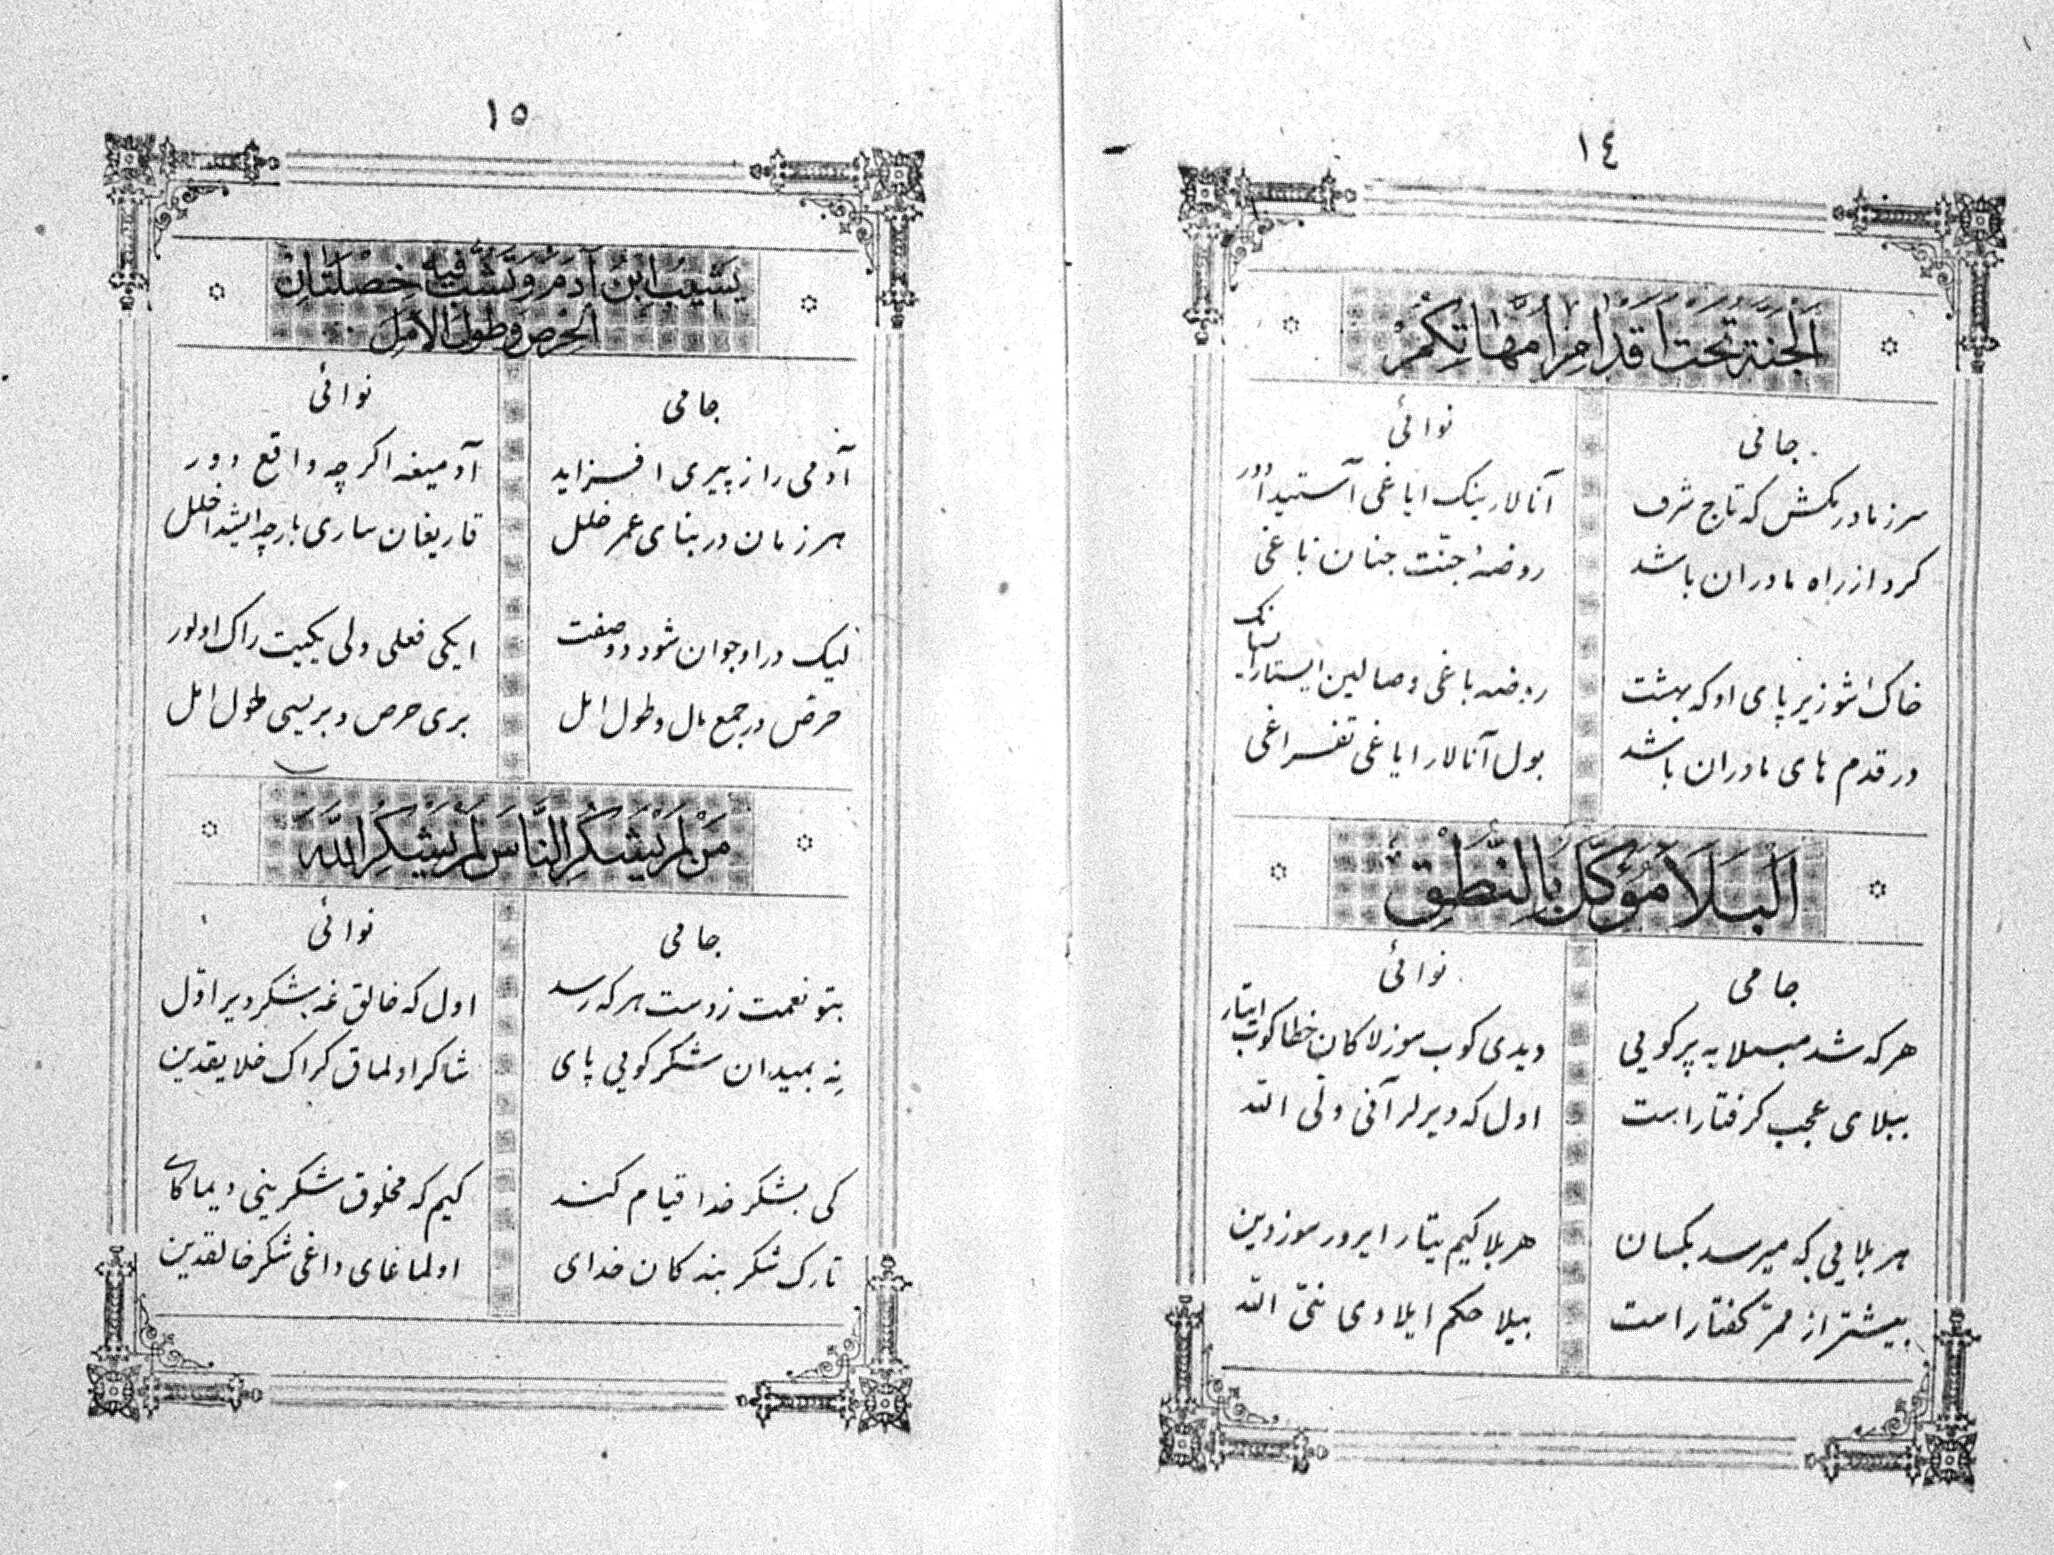 ١٤
اَلْجَنَّةُ تَحْتَ اَقْدَامِ اُمَّهَاتِكُمْ
جامی
سر ز مادر مکش که تاج شرف
کرد از راه مادران باشد
خاک شو زیر پای او که بهشت
در قدم های مادران باشد
نوائی
آنالارینک ایاغی آستیدادور
روضهٔ جنّت جنان باغی
روضه باغی وصالین ایستار
بول آنالار ایاغی تفراغی
اَلْبَلَاءُ مُوَكَّلٌ بِالنُّطْقِ
جامی
هر که شد مبتلا به پر کویی
ببلای عجب کرفتار است
هر بلایی که میرسد بکسان
بیشتر از ممر کفتار است
نوائی
دیدی کوب سوز لاکان خطا کوب ایتار
اول که دیرلر آنی ولی الله
هر بلا کیم یتار ایرور سوزدین
بیلا حکم ایلادی نبیّ الله
١٥
يَشِيبُ ابْنُ آدَمَ وَتَشِبُّ فِيهِ خِصْلَتَانِ
اَلْحِرْصُ وَطُولُ الْاَمَلِ
جامی
آدمی را ز پیری افزاید
هر زمان در بنای عمر خلل
لیک در او جوان شود دو صفت
حرص در جمع مال و طول امل
نوائی
آدمیغه اکرچه واقع دور
قاریغان ساری بارچه ایشدا خلل
ایکی فعلی ولی یکیت راک اولور
بری حرص و بریسی طول امل
مَنْ لَمْ يَشْكُرِ النَّاسَ لَمْ يَشْكُرِ اللّٰهَ
جامی
بتو نعمت ز دست هر که رسد
نِه بمیدان شکر کویی پای
کی بشکر خدا قیام کند
تارک شکر بندکان خدای
نوائی
اول که خالق غه بشکر دیر اوّل
شاکر اولماق کراک خلایقدین
کیم که مخلوق شکرینی دیماکای
اولماغای داغی شکر خالقدین